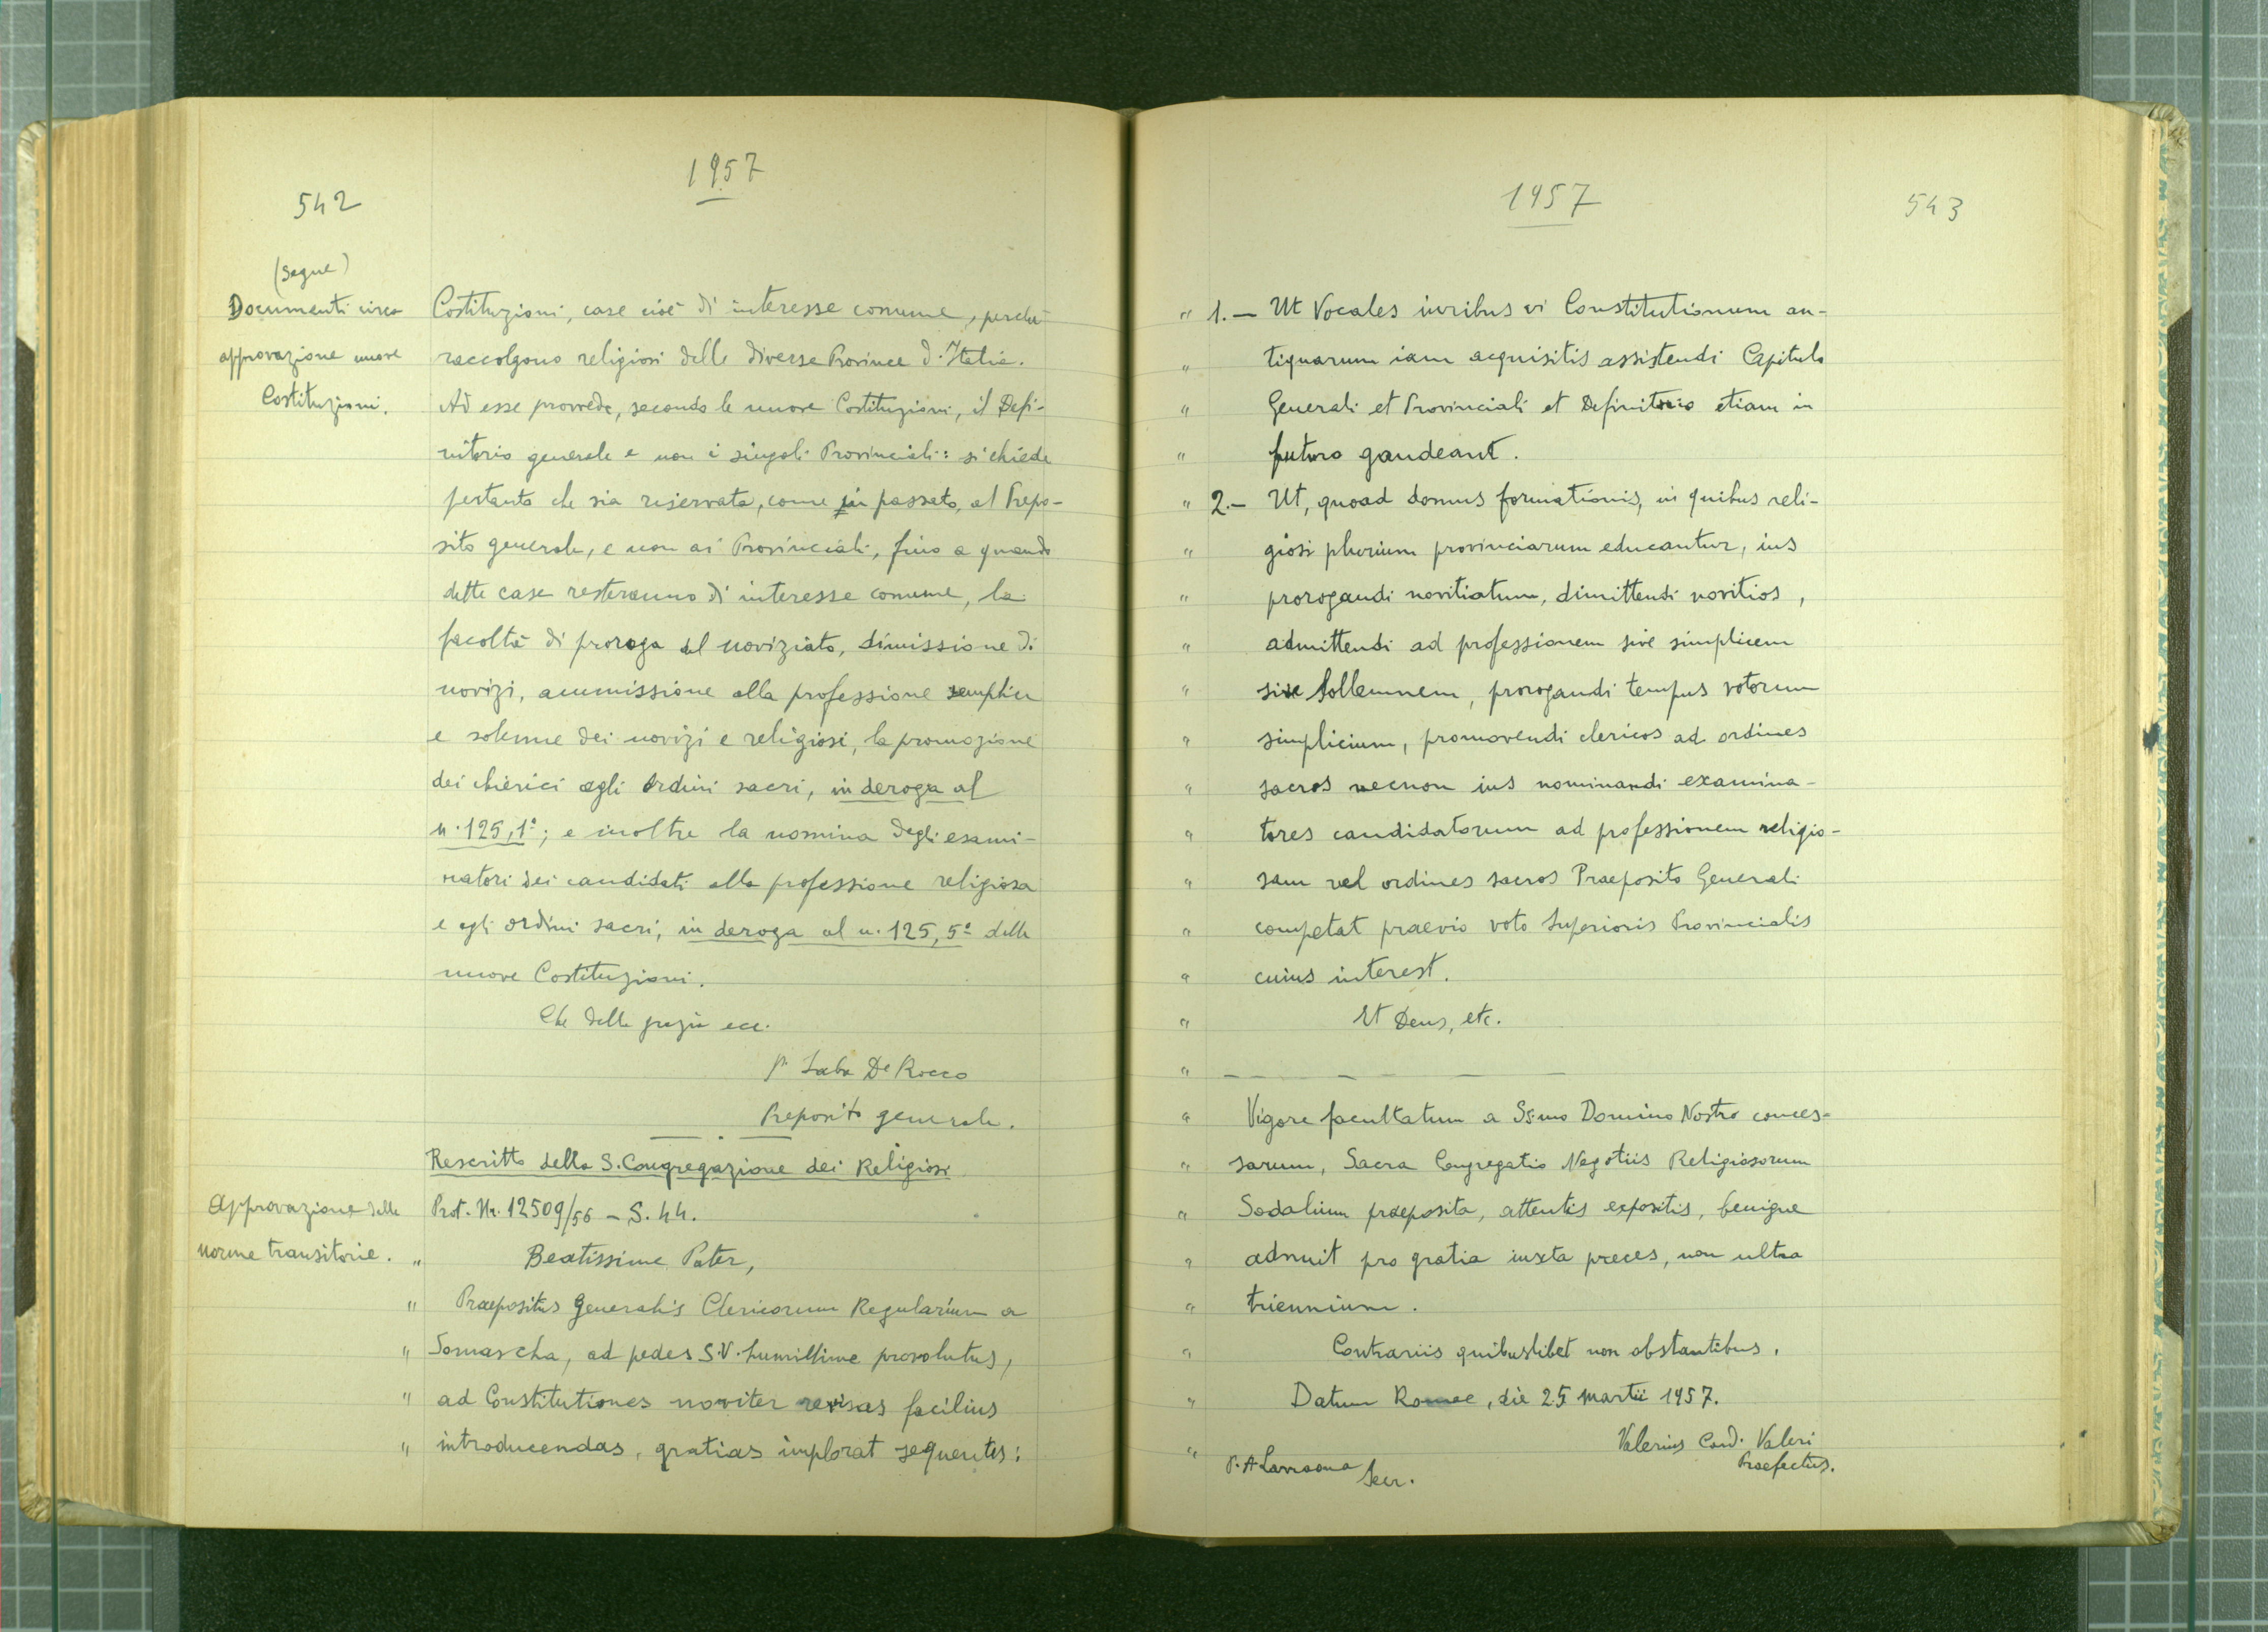 542
1957
(Segue)
Documenti circa
approvazione nuove
Costituzioni.
Costituzioni, case cioè di interesse comune, perché
raccolgono religiosi delle diverse Province d'Italia.
Ad esse provvede, secondo le nuove Costituzioni, il Defi-
nitorio generale e non i singoli Provinciali: si chiede
pertanto che sia riservata, come in passato, al Prepo-
sito generale, e non ai Provinciali, fino a quando
dette case resteranno di interesse comune, la
facoltà di proroga del noviziato, dimissione di
novizi, ammissione alla professione semplice
e solenne dei novizi e religiosi, la promozione
dei chierici agli ordini sacri, in deroga al
n. 125, 1°; e inoltre la nomina degli esami-
natori dei candidati alla professione religiosa
e agli ordini sacri, in deroga al n. 125, 5° delle
nuove Costituzioni.
Che della grazia ecc.
p. Saba De Rocco
Preposito generale.
Rescritto della S. Congregazione dei Religiosi
Approvazione delle
norme transitorie.
Prot. Nr. 12509/56 - S. 44.
" Beatissime Pater,
" Praepositus Generalis Clericorum Regularium a
" Somascha, ad pedes S.V. humillime provolutus,
" ad Constitutiones noviter revisas facilius
" introducendas, gratias implorat sequentes:
1957
543
" 1. — Ut Vocales iuribus vi Constitutionum an-
" tiquarum iam acquisitis assistendi Capitulo
" Generali et Provinciali et Definitorio etiam in
" futuro gaudeant.
" 2. — Ut, quoad domus formationis, in quibus reli-
" giosi plurium provinciarum educantur, ius
" prorogandi novitiatum, dimittendi novitios,
" admittendi ad professionem sive simplicem
" sive sollemnem, prorogandi tempus votorum
" simplicium, promovendi clericos ad ordines
" sacros necnon ius nominandi examina-
" tores candidatorum ad professionem religio-
" sam vel ordines sacros Praeposito Generali
" competat praevio voto Superioris Provincialis
" cuius interest.
" Et Deus, etc.
" — — — —
" Vigore facultatum a Ss.mo Domino Nostro conces-
" sarum, Sacra Congregatio Negotiis Religiosorum
" Sodalium praeposita, attentis expositis, benigne
" adnuit pro gratia iuxta preces, non ultra
" triennium.
" Contrariis quibuslibet non obstantibus.
" Datum Romae, die 25 martii 1957.
Valerius Card. Valeri
Praefectus.
" P. A Larraona
Secr.